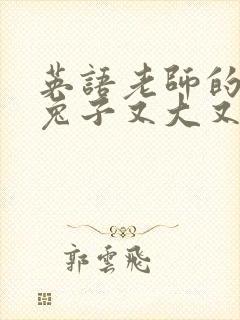 英語老師的
兔子又大又
郭雲飛